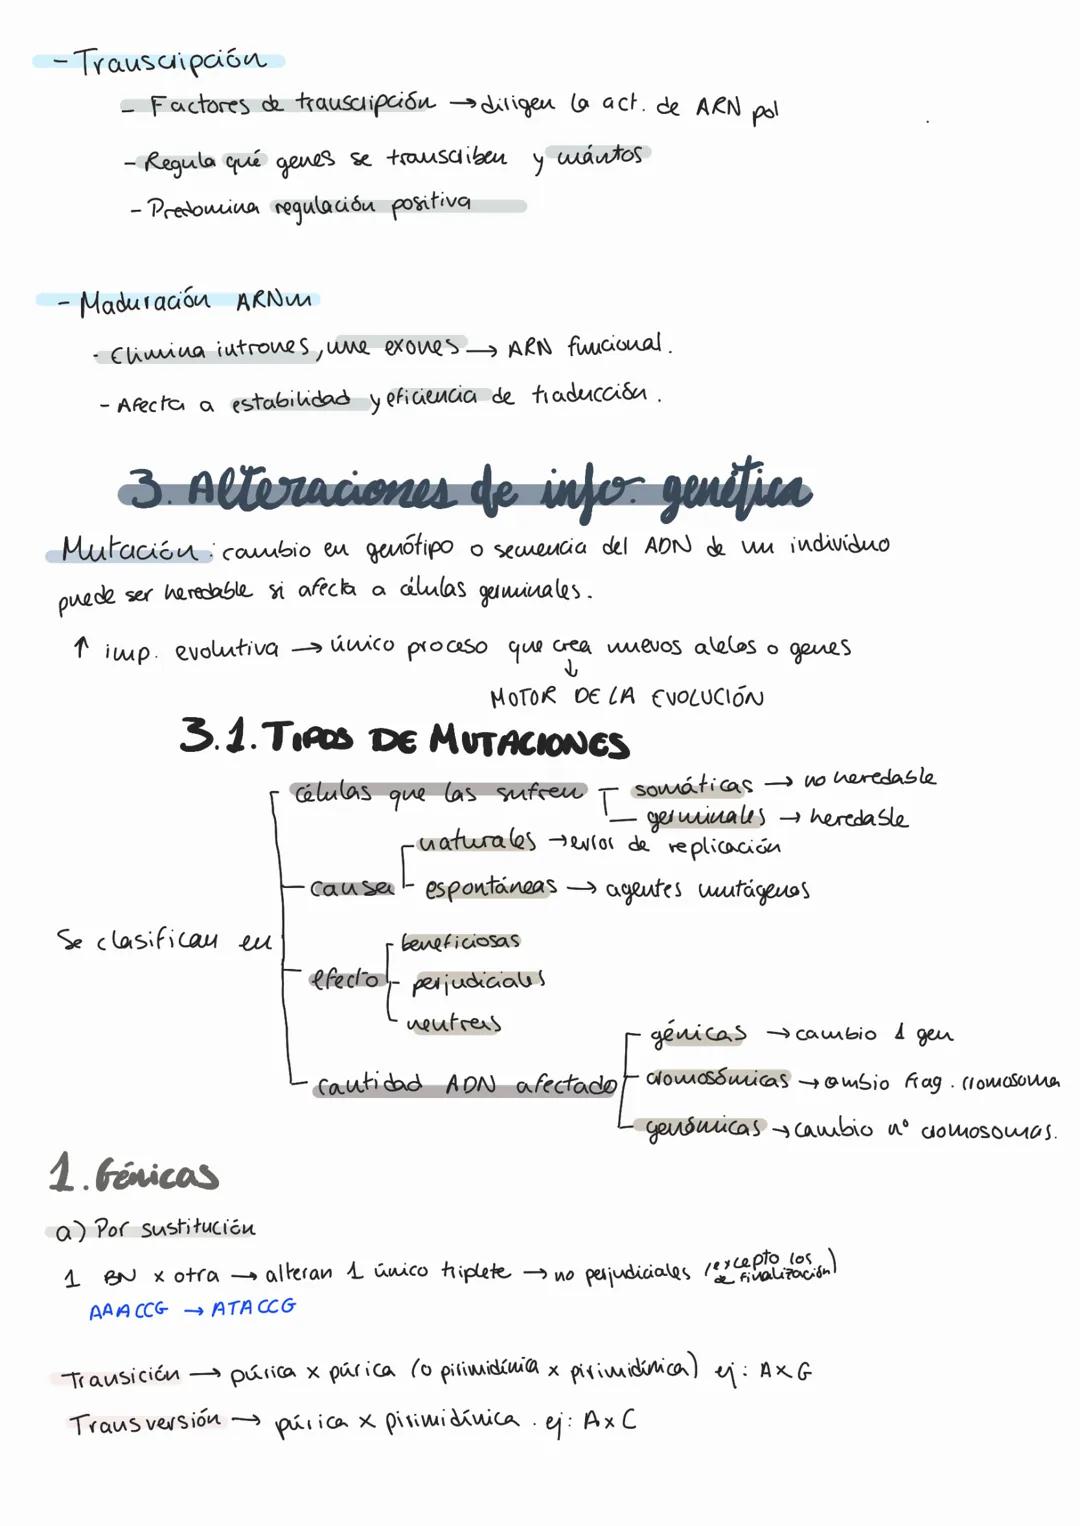 - Transcripción
- Factores de transcripción → dirigen la act. de ARN pol
- Regula qué genes se transcriben y cuántos
- Predomina regulación positiva
- Maduración ARNm
- Elimina intrones, une exones → ARN funcional.
- Afecta a estabilidad y eficiencia de traducción.
3. Alteraciones de info. genética
Mutación: cambio en genótipo o secuencia del ADN de un individuo
puede ser heredable si afecta a células germinales.
↑ imp. evolutiva → único proceso que crea nuevos alelos o genes
↓
MOTOR DE LA EVOLUCIÓN
3.1. TIPOS DE MUTACIONES
Se clasifican en
células que las sufren
somáticas → no heredable
germinales → heredable
causa
naturales → error de replicación
espontáneas → agentes mutágenos
efecto
beneficiosas
perjudiciales
neutras
cantidad ADN afectado
génicas → cambio 1 gen
cromosómicas → cambio frag. cromosoma
genómicas → cambio nº cromosomas.
1. Génicas
a) Por sustitución
1 BN x otra → alteran 1 único triplete → no perjudiciales (excepto los de finalización)
AAACCG → ATACCG
Transición → púrica x púrica (o pirimidínia x pirimidínica) ej: AxG
Transversión → púrica x pirimidínica. ej: AxC